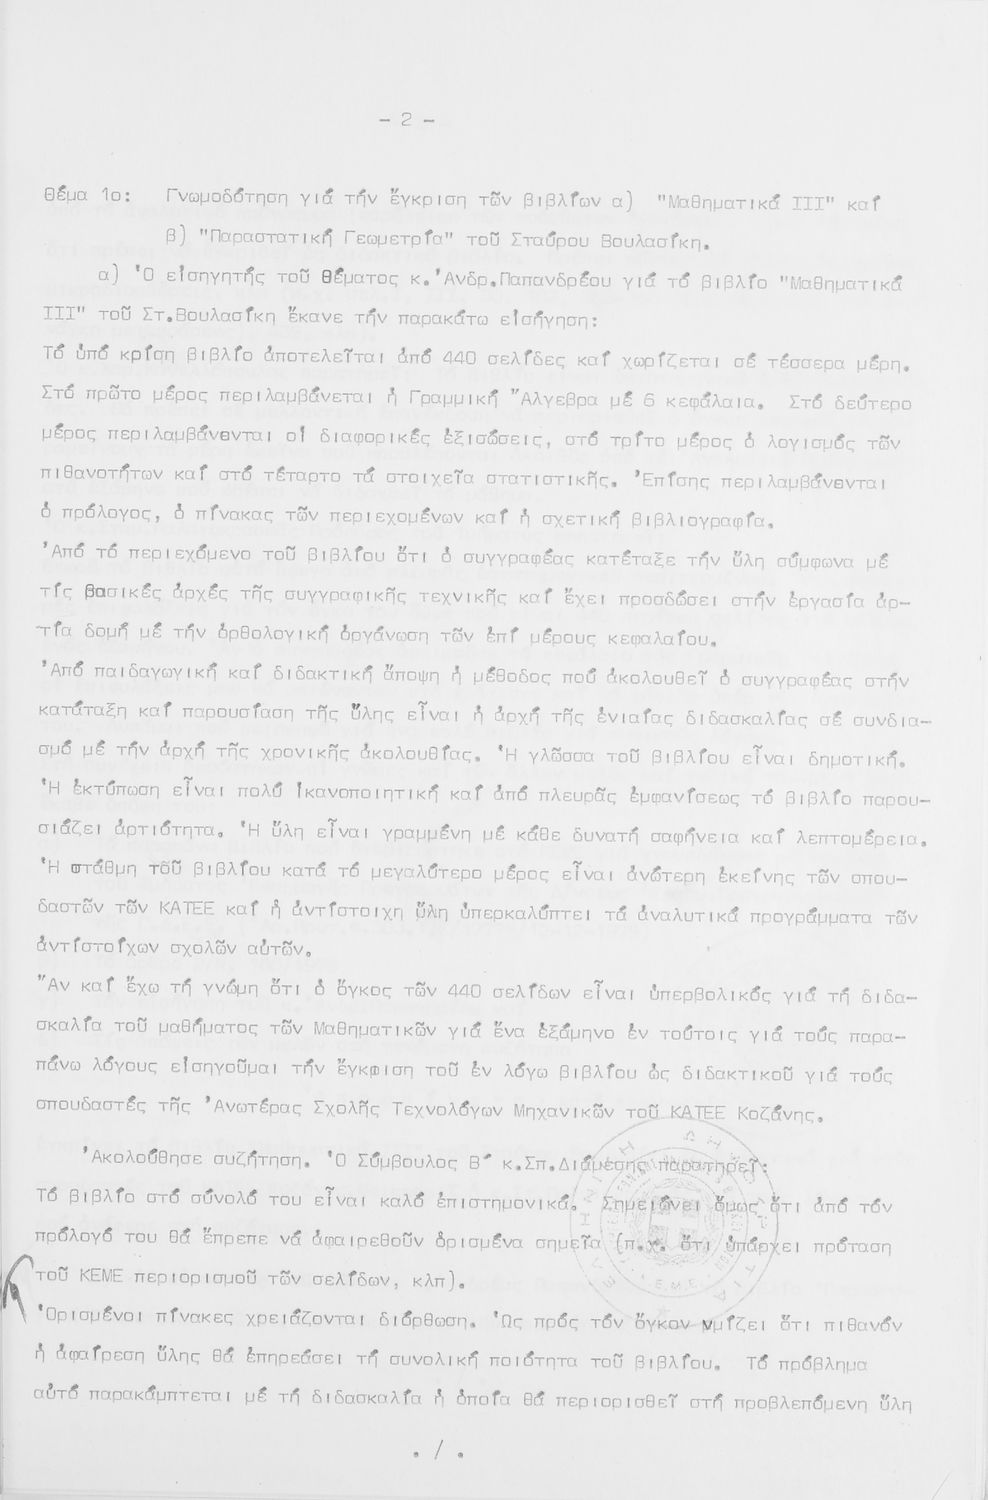 - 2 -
Θέμα 1ο: Γνωμοδότηση γιά τήν ἔγκριση τῶν βιβλίων α) "Μαθηματικά ΙΙΙ" καί
β) "Παραστατική Γεωμετρία" τοῦ Σταύρου Βουλασίκη.
α) Ὁ εἰσηγητής τοῦ θέματος κ.Ἀνδρ.Παπανδρέου γιά τό βιβλίο "Μαθηματικά
ΙΙΙ" τοῦ Στ.Βουλασίκη ἔκανε τήν παρακάτω εἰσήγηση:
Τό ὑπό κρίση βιβλίο ἀποτελεῖται ἀπό 440 σελίδες καί χωρίζεται σέ τέσσερα μέρη.
Στό πρῶτο μέρος περιλαμβάνεται ἡ Γραμμική Ἄλγεβρα μέ 6 κεφάλαια. Στό δεύτερο
μέρος περιλαμβάνονται οἱ διαφορικές ἐξισώσεις, στό τρίτο μέρος ὁ λογισμός τῶν
πιθανοτήτων καί στό τέταρτο τά στοιχεῖα στατιστικῆς. Ἐπίσης περιλαμβάνονται
ὁ πρόλογος, ὁ πίνακας τῶν περιεχομένων καί ἡ σχετική βιβλιογραφία.
Ἀπό τό περιεχόμενο τοῦ βιβλίου ὅτι ὁ συγγραφέας κατέταξε τήν ὕλη σύμφωνα μέ
τίς βασικές ἀρχές τῆς συγγραφικῆς τεχνικῆς καί ἔχει προσδώσει στήν ἐργασία ἀρ-
τία δομή μέ τήν ὀρθολογική ὀργάνωση τῶν ἐπί μέρους κεφαλαίου.
Ἀπό παιδαγωγική καί διδακτική ἄποψη ἡ μέθοδος πού ἀκολουθεῖ ὁ συγγραφέας στήν
κατάταξη καί παρουσίαση τῆς ὕλης εἶναι ἡ ἀρχή τῆς ἑνιαίας διδασκαλίας σέ συνδια-
σμό μέ τήν ἀρχή τῆς χρονικῆς ἀκολουθίας. Ἡ γλῶσσα τοῦ βιβλίου εἶναι δημοτική.
Ἡ ἐκτύπωση εἶναι πολύ ἱκανοποιητική καί ἀπό πλευρᾶς ἐμφανίσεως τό βιβλίο παρου-
σιάζει ἀρτιότητα. Ἡ ὕλη εἶναι γραμμένη μέ κάθε δυνατή σαφήνεια καί λεπτομέρεια.
Ἡ στάθμη τοῦ βιβλίου κατά τό μεγαλύτερο μέρος εἶναι ἀνώτερη ἐκείνης τῶν σπου-
δαστῶν τῶν ΚΑΤΕΕ καί ἡ ἀντίστοιχη ὕλη ὑπερκαλύπτει τά ἀναλυτικά προγράμματα τῶν
ἀντίστοίχων σχολῶν αὐτῶν.
Ἄν καί ἔχω τή γνώμη ὅτι ὁ ὄγκος τῶν 440 σελίδων εἶναι ὑπερβολικός γιά τή διδα-
σκαλία τοῦ μαθήματος τῶν Μαθηματικῶν γιά ἕνα ἑξάμηνο ἐν τούτοις γιά τούς παρα-
πάνω λόγους εἰσηγοῦμαι τήν ἔγκριση τοῦ ἐν λόγω βιβλίου ὡς διδακτικοῦ γιά τούς
σπουδαστές τῆς Ἀνωτέρας Σχολῆς Τεχνολόγων Μηχανικῶν τοῦ ΚΑΤΕΕ Κοζάνης.
Ἀκολούθησε συζήτηση. Ὁ Σύμβουλος Β΄ κ.Σπ.Διαμέσης παρατηρεῖ:
Τό βιβλίο στό σύνολό του εἶναι καλό ἐπιστημονικά. Σημειώνει ὅμως ὅτι ἀπό τόν
πρόλογό του θά ἔπρεπε νά ἀφαιρεθοῦν ὁρισμένα σημεῖα (π.χ. ὅτι ὑπάρχει πρόταση
τοῦ ΚΕΜΕ περιορισμοῦ τῶν σελίδων, κλπ).
Ὁρισμένοι πίνακες χρειάζονται διόρθωση. Ὡς πρός τόν ὄγκον νμίζει ὅτι πιθανόν
ἡ ἀφαίρεση ὕλης θά ἐπηρεάσει τή συνολική ποιότητα τοῦ βιβλίου. Τό πρόβλημα
αὐτό παρακάμπτεται μέ τή διδασκαλία ἡ ὁποία θά περιορισθεῖ στή προβλεπόμενη ὕλη
. / .